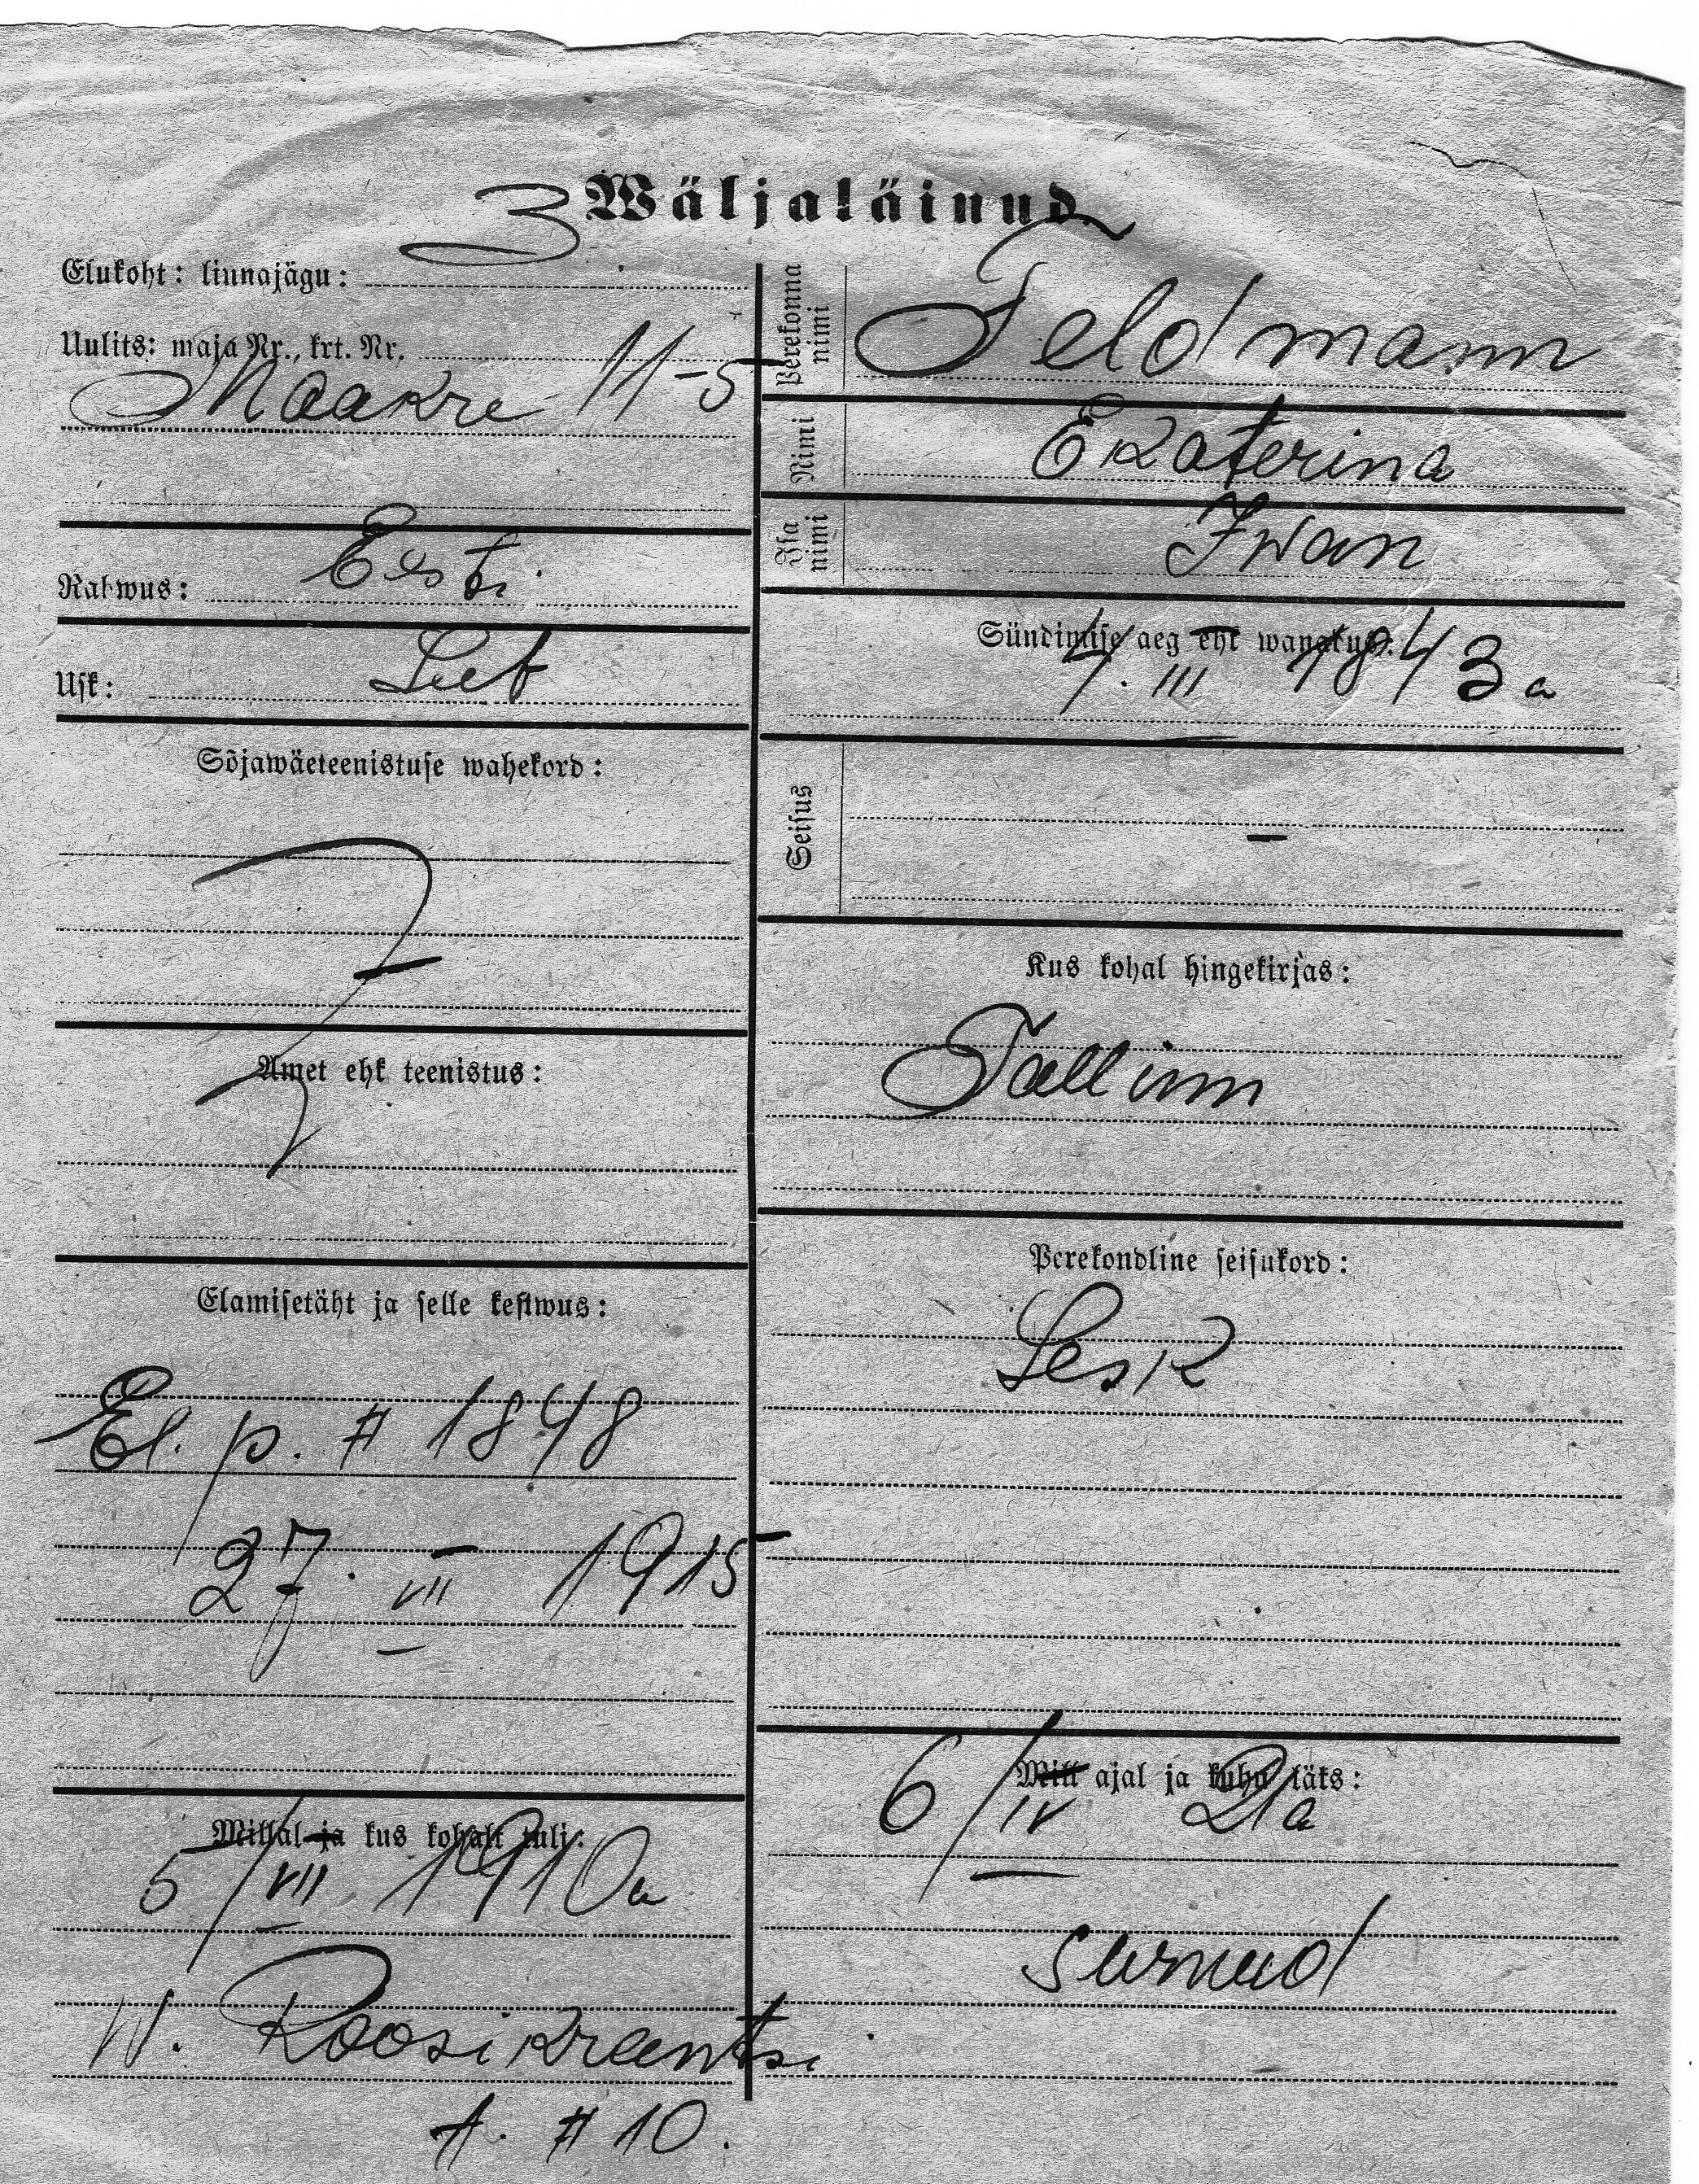 Wäljaläinud.
Elukoht: linnajägu: 3.
Uulits: maja Nr., krt. Nr.
Maakre 11-5
Rahwus: Eesti
Usk: Lut
Sõjawäeteenistuse wahekord:
Amet ehk teenistus:
Elamisetäht ja selle kestwus:
El. p. # 1848
27. VII 1915
Millal ja kus kohalt tuli:
5/VII 1910a
W. Roosikrantsi
t. # 10.
Perekonna nimi
Feldmann
Nimi
Ekaterina
Isa nimi
Iwan
Sündimise aeg ehk wanadus:
4. III 1843 a
Seisus
-
Kus kohal hingekirjas:
Tallinn
Perekondline seisukord:
Lesk
Mill ajal ja kuhu läks:
6/IV 21a
surnud